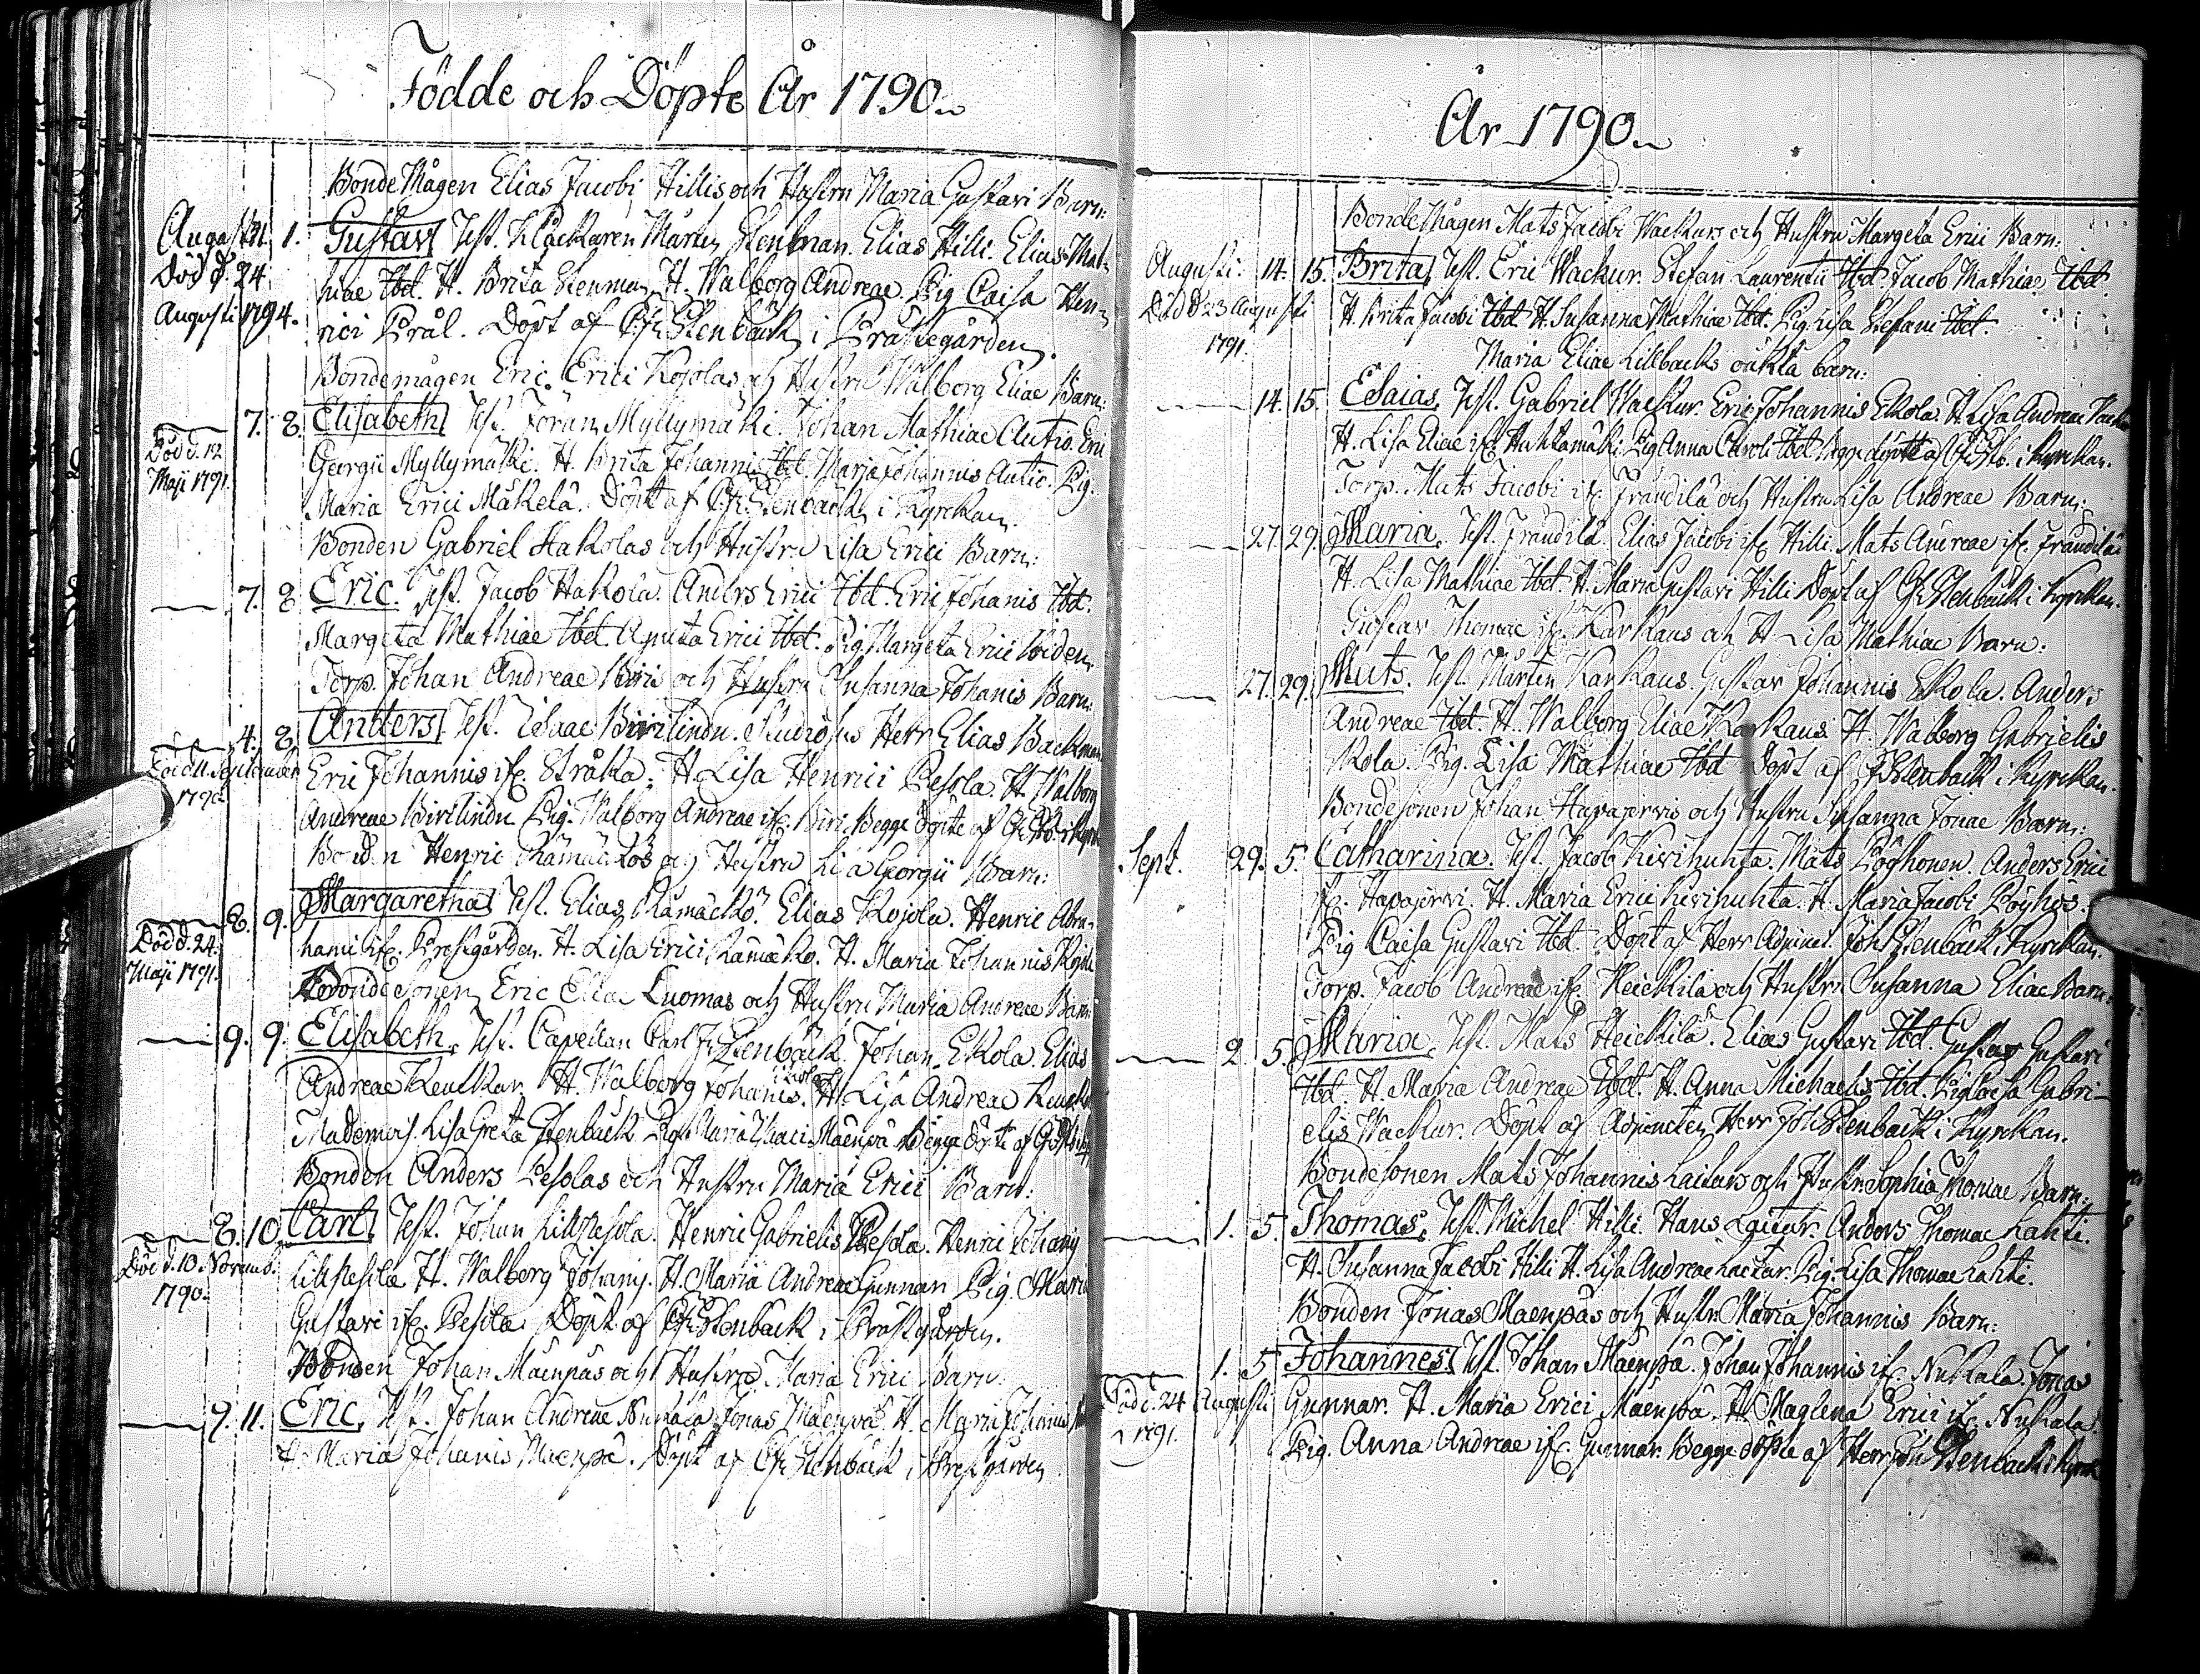 Födde och Döpte År 1790.
Bonde Mågen Elias Jacobi Hillis och Hustru Maria Gustavi Barn:
Augusti 1. Gustav Test. Klåckaren Mårten Stenman. Elias Hilli. Elias Mat-
Död d. 24 hiae Ibd. H. Brita Stenman H. Walborg Andreae Pig Caisa Hen-
Augusti 1794. rici Prål. Döpt af Stenbäck i Prästegården.
Bondemågen Eric Erici Kojolas och Hustru Walborg Eliae Barn:
7. 8. Elisabeth Test. Jöran Myllymäki. Johan Mathiae Autio. Eric
Död d. 12 Georgii Myllymäki. H. Brita Johannis Ibd. Marja Johannis Autio. Pig.
Maji 1791. Maria Erici Mäkelä. Döpt af Stenbäck i Kyrckan.
Bonden Gabriel Hakolas och Hustru Lisa Erici Barn:
7. 8 Eric. Test. Jacob Hakola. Anders Erici Ibd. Eric Johanis Ibd.
Margeta Mathiae Ibd. Agneta Erici Ibd. Pig. Margeta Erici
Torp. Johan Andreae och Hustru Susanna Johanis Barn:
4. 8 Anders Test. Isaac Studiosus Herr Elias Backman
Död d. 11 September Eric Johannis if. Stråka. H. Lisa Henrici Pesola. H. Walborg
1790. Andreae Pig. Walborg Andreae if. Begge döpte af
Bonden Henric Kämäckös och Hustru Lisa Georgii Barn:
8. 9. Margaretha Test. Elias Kämäckö. Elias Kojola. Henric Abra-
Död d. 24. hami if. Prestgården. H. Lisa Erici Kämäkö. H. Maria Johannis
Maji 1791. Bondesonen Eric Eliae Luomas och Hustru Maria Andreae Barn
9. 9. Elisabeth, Test. Capellan Carl Fr. Stenbäck. Johan Ekola. Elias
Andreae H. Walborg Johanis Ekola. H. Lisa Andreae
Mademois. Lisa Greta Stenbäck Pig. Maria Isaaci Mäenpä Begge döpte af
Bonden Anders Pesolas och Hustru Maria Erici Barn:
8. 10 Carl Test. Johan Lillpesola. Henric Gabrielis Pesola. Henric Johanis
Död d. 10 Novemb. Lillpesola H. Walborg Johanis. H. Maria Andreae Gunnar Pig. Maria
1790. Gustavi if. Pesola Döpt af Stenbäck i Prästgården.
Bonden Johan Mäenpäs och Hustru Maria Erici Barn.
9. 11. Eric, Test. Johan Andreae Jonas Mäenpä. H. Maria Johannis
H. Maria Johanis Mäenpä. Döpt af Stenbäck i Prestgården
År 1790.
Bonde Mågen Mats Jacobi Wackurs och Hustru Margeta Erici Barn:
Augusti. 14. 15. Brita, Test. Eric Wackur. Stefan Laurentii Ibd. Jacob Mathiae Ibd.
Död d 23 Augusti H. Brita Jacobi Ibd. H. Susanna Mathiae Ibd. Pig. Lisa Stefani Ibd.
1791. Maria Eliae Lillbacks oäkta barn:
14. 15. Esaias, Test. Gabriel Wackur. Eric Johannis Ekola. H. Lisa Andreae
H. Lisa Eliae if. Huhtamäki. Pig Anna Caroli Ibd. Begge döpte af i Kyrckan.
Torp. Mats Jacobi if. Frändilä och Hustru Lisa Andreae Barn:
27. 29. Maria, Test. Frändilä. Elias Jacobi if. Hilli. Mats Andreae if. Frändilä
H. Lisa Mathiae Ibd. H. Maria Gustavi Hilli Döpt af Stenbäck i Kyrckan.
Gustav Thomae if. Karhaus och H Lisa Mathiae Barn:
27. 29. Mats. Test. Mårten Karhaus. Gustav Johannis Ekola. Anders
Andreae Ibd. H. Walborg Eliae Karhaus. H. Walborg Gabrielis
Kola. Pig. Lisa Mathiae Ibd Döpt af Stenbäck i Kyrckan.
Bondesonen Johan Havajervis och Hustru Susanna Jonae Barn:
Sept. 29. 5. Catharina. Test. Jacob Kivihuhta. Mats Pöyhonen. Anders Erici
if. Havajervi. H. Maria Erici Kivihuhta. H. Maria Jacobi Pöyhös.
Pig Caisa Gustavi Ibd. Döpt af Herr Adjunct. Joh Stenbäck i Kyrckan.
Torp. Jacob Andreae if. Heickilä och Hustru Susanna Eliae Barn:
2. 5. Maria, Test. Mats Heickilä. Elias Gustavi Ibd. Gustav Gustavi
Ibd. H. Maria Andreae Ibd. H. Anna Michaelis Ibd. Pig Caisa Gabri-
elis Wackur. Döpt af Adjuncten Herr Joh Stenbäck i Kyrckan.
Bondesonen Mats Johannis Laitars och Hustr. Sophia Thomae Barn:
1. 5. Thomas, Test. Michel Hilli. Hans Laitar. Anders Thomae Lahti.
H. Susanna Jacobi Hilli H. Lisa Andreae Laitar. Pig. Lisa Thomae Lahti.
Bonden Jonas Maenpäs och Hustr. Maria Johannis Barn:
1. 5 Johannes, Test. Johan Maenpä. Johan Johannis if. Nukala. Jonas
Död d. 24 Augusti Gunnar. H. Maria Erici Mäenpä. H. Maglena Erici if. Nukala
1791. Pig. Anna Andreae if. Gunnar. Begge döpte af Herr Joh Stenbäck i Kyrck